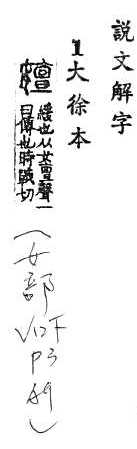 說文解字
1大徐本
嬗 緩也从女亶聲一
曰傳也時戰切
(女部 V12下 P3 A9)